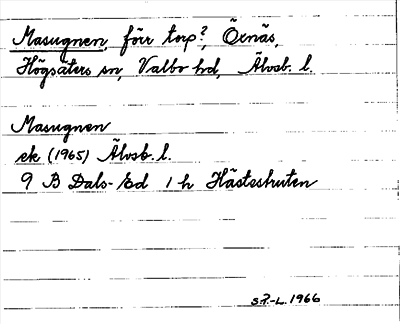 Masugnen, förr torp?, Öxnäs,
Högsäters sn, Valbo hd, Älvsb. l.
Masugnen
ek (1965) Älvsb. l.
9 B Dals-Ed 1 h Hästeshuten
S.P.-L. 1966